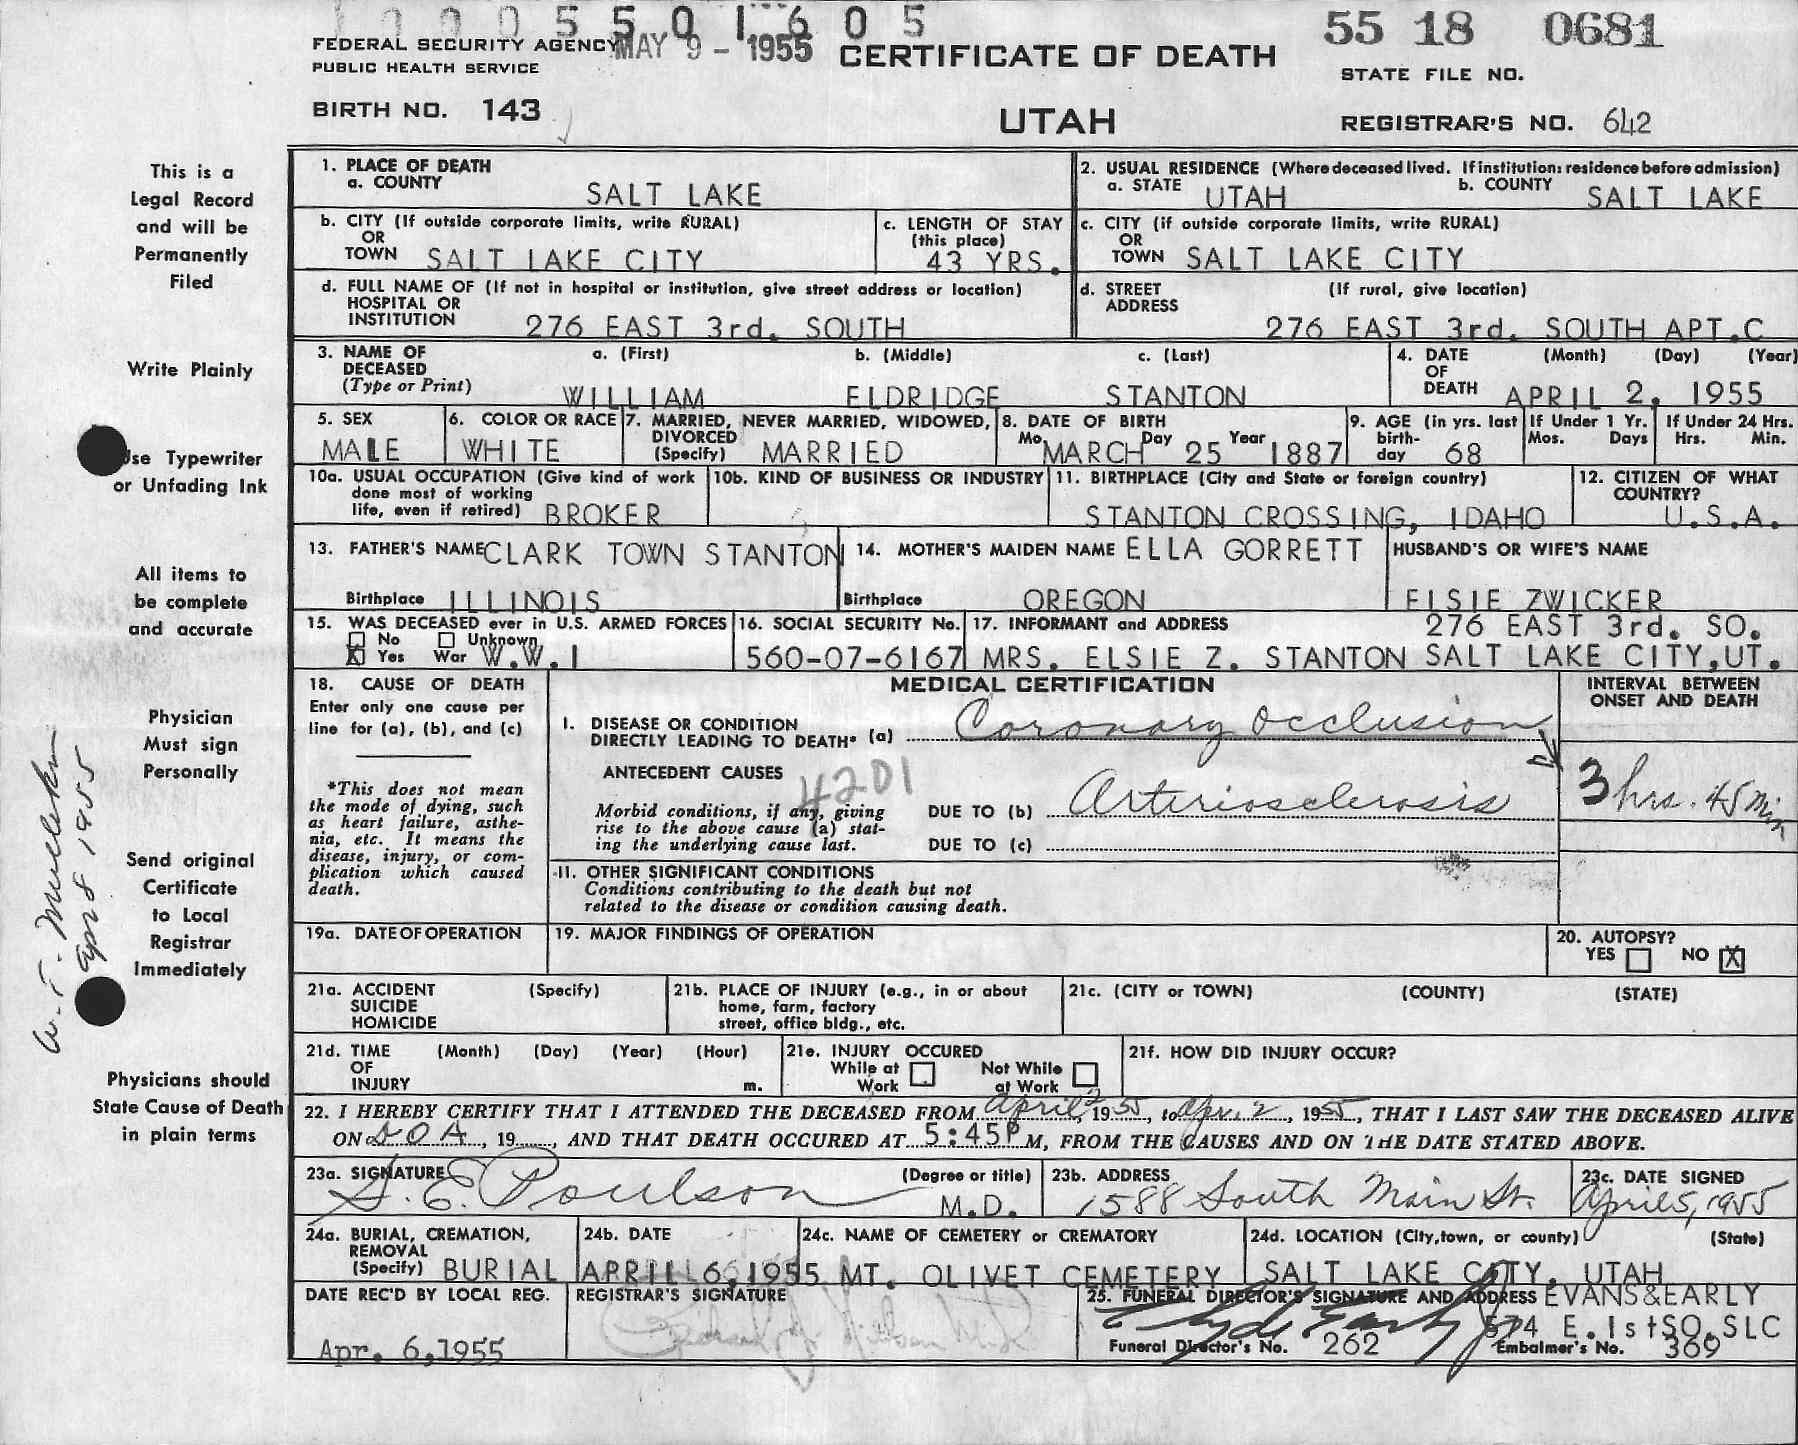 0 0 0 5 5 0 1 6 0 5
FEDERAL SECURITY AGENCY
PUBLIC HEALTH SERVICE
MAY 9 - 1955
CERTIFICATE OF DEATH
55 18 0681
STATE FILE NO.
BIRTH NO. 143
UTAH
REGISTRAR'S NO. 642
This is a
Legal Record
and will be
Permanently
Filed
Write Plainly
Use Typewriter
or Unfading Ink
All items to
be complete
and accurate
Physician
Must sign
Personally
Send original
Certificate
to Local
Registrar
Immediately
Physicians should
State Cause of Death
in plain terms
Apr 8 1955
1. PLACE OF DEATH
a. COUNTY
SALT LAKE
2. USUAL RESIDENCE (Where deceased lived. If institution: residence before admission)
a. STATE UTAH b. COUNTY SALT LAKE
b. CITY (If outside corporate limits, write RURAL)
OR
TOWN SALT LAKE CITY
c. LENGTH OF STAY
(this place)
43 YRS.
c. CITY (if outside corporate limits, write RURAL)
OR
TOWN SALT LAKE CITY
d. FULL NAME OF (If not in hospital or institution, give street address or location)
HOSPITAL OR
INSTITUTION 276 EAST 3rd. SOUTH
d. STREET (If rural, give location)
ADDRESS
276 EAST 3rd. SOUTH APT.C
3. NAME OF
DECEASED
(Type or Print)
a. (First) b. (Middle) c. (Last)
WILLIAM ELDRIDGE STANTON
4. DATE (Month) (Day) (Year)
OF
DEATH APRIL 2, 1955
5. SEX
MALE
6. COLOR OR RACE
WHITE
7. MARRIED, NEVER MARRIED, WIDOWED,
DIVORCED
(Specify) MARRIED
8. DATE OF BIRTH
Mo. Day Year
MARCH 25 1887
9. AGE (in yrs. last
birth-
day 68
If Under 1 Yr.
Mos. Days
If Under 24 Hrs.
Hrs. Min.
10a. USUAL OCCUPATION (Give kind of work
done most of working
life, even if retired) BROKER
10b. KIND OF BUSINESS OR INDUSTRY
11. BIRTHPLACE (City and State or foreign country)
STANTON CROSSING, IDAHO
12. CITIZEN OF WHAT
COUNTRY?
U.S.A.
13. FATHER'S NAME CLARK TOWN STANTON
Birthplace ILLINOIS
14. MOTHER'S MAIDEN NAME ELLA GORRETT
Birthplace OREGON
HUSBAND'S OR WIFE'S NAME
ELSIE ZWICKER
15. WAS DECEASED ever in U.S. ARMED FORCES
No Unknown
X Yes War W.W.I
16. SOCIAL SECURITY No.
560-07-6167
17. INFORMANT and ADDRESS 276 EAST 3rd. SO.
MRS. ELSIE Z. STANTON SALT LAKE CITY, UT.
18. CAUSE OF DEATH
Enter only one cause per
line for (a), (b), and (c)
*This does not mean
the mode of dying, such
as heart failure, asthe-
nia, etc. It means the
disease, injury, or com-
plication which caused
death.
MEDICAL CERTIFICATION
I. DISEASE OR CONDITION
DIRECTLY LEADING TO DEATH* (a) Coronary Occlusion
ANTECEDENT CAUSES
4201
Morbid conditions, if any, giving
rise to the above cause (a) stat-
ing the underlying cause last.
DUE TO (b) Arteriosclerosis
DUE TO (c)
INTERVAL BETWEEN
ONSET AND DEATH
3 hrs. 45 Min
II. OTHER SIGNIFICANT CONDITIONS
Conditions contributing to the death but not
related to the disease or condition causing death.
19a. DATE OF OPERATION
19. MAJOR FINDINGS OF OPERATION
20. AUTOPSY?
YES NO X
21a. ACCIDENT (Specify)
SUICIDE
HOMICIDE
21b. PLACE OF INJURY (e.g., in or about
home, farm, factory
street, office bldg., etc.
21c. (CITY or TOWN) (COUNTY) (STATE)
21d. TIME (Month) (Day) (Year) (Hour)
OF
INJURY m.
21e. INJURY OCCURED
While at Work Not While at Work
21f. HOW DID INJURY OCCUR?
22. I HEREBY CERTIFY THAT I ATTENDED THE DECEASED FROM April 2, 1955, to Apr. 2, 1955, THAT I LAST SAW THE DECEASED ALIVE
ON DOA, 19....., AND THAT DEATH OCCURED AT 5:45P M, FROM THE CAUSES AND ON THE DATE STATED ABOVE.
23a. SIGNATURE (Degree or title)
S. E. Poulson M.D.
23b. ADDRESS
1588 South Main St.
23c. DATE SIGNED
April 5, 1955
24a. BURIAL, CREMATION,
REMOVAL
(Specify) BURIAL
24b. DATE
APRIL 6, 1955
24c. NAME OF CEMETERY or CREMATORY
MT. OLIVET CEMETERY
24d. LOCATION (City, town, or county) (State)
SALT LAKE CITY, UTAH
DATE REC'D BY LOCAL REG.
Apr. 6, 1955
REGISTRAR'S SIGNATURE
25. FUNERAL DIRECTOR'S SIGNATURE AND ADDRESS EVANS&EARLY
574 E. 1st SO. SLC
Funeral Director's No. 262 Embalmer's No. 369